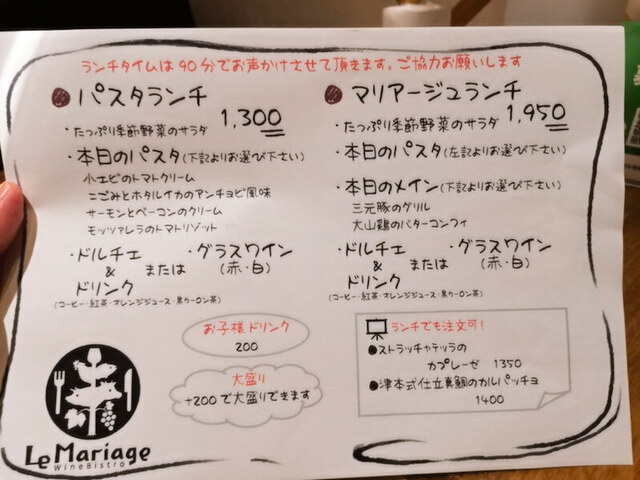 ランチタイムは90分でお声かけさせて頂きます。ご協力お願いします
パスタランチ
1,300
・たっぷり季節野菜のサラダ
・本日のパスタ(下記よりお選び下さい)
小エビのトマトクリーム
こごみとホタルイカのアンチョビ風味
サーモンとベーコンのクリーム
モッツァレラのトマトリゾット
・ドルチェ または ・グラスワイン
& (赤・白)
ドリンク
(コーヒー・紅茶・オレンジジュース・黒ウーロン茶)
マリアージュランチ
1,950
・たっぷり季節野菜のサラダ
・本日のパスタ(左記よりお選び下さい)
・本日のメイン(下記よりお選び下さい)
三元豚のグリル
大山鶏のバターコンフィ
・ドルチェ または ・グラスワイン
& (赤・白)
ドリンク
(コーヒー・紅茶・オレンジジュース・黒ウーロン茶)
お子様ドリンク
200
大盛り
+200で大盛りできます
ランチでも注文可!
●ストラッチャテッラの
カプレーゼ 1350
●津本式仕立真鯛のカルパッチョ
1400
Le Mariage
Wine Bistro